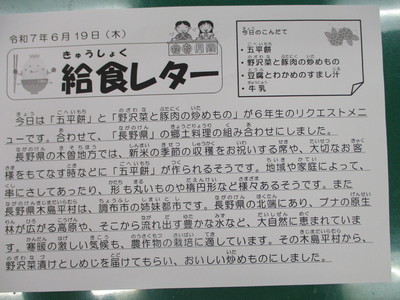 令和7年6月19日（木）
きゅうしょく
給食レター
今日のこんだて
・五平餅
・野沢菜と豚肉の炒めもの
・豆腐とわかめのすまし汁
・牛乳
今日は「五平餅」と「野沢菜と豚肉の炒めもの」が６年生のリクエストメニ
ューです。合わせて、「長野県」の郷土料理の組み合わせにしました。
長野県の木曽地方では、新米の季節の収穫をお祝いする席や、大切なお客
様をもてなす時などに「五平餅」が作られるそうです。地域や家庭によって、
串にさしてあったり、形も丸いものや楕円形など様々あるそうです。また
長野県木島平村は、調布市の姉妹都市です。長野県の北端にあり、ブナの原生
林が広がる高原や、そこから流れ出す豊かな水など、大自然に恵まれていま
す。寒暖の激しい気候も、農作物の栽培に適しています。その木島平村から、
野沢菜漬けとしめじを届けてもらい、おいしい炒めものにしました。